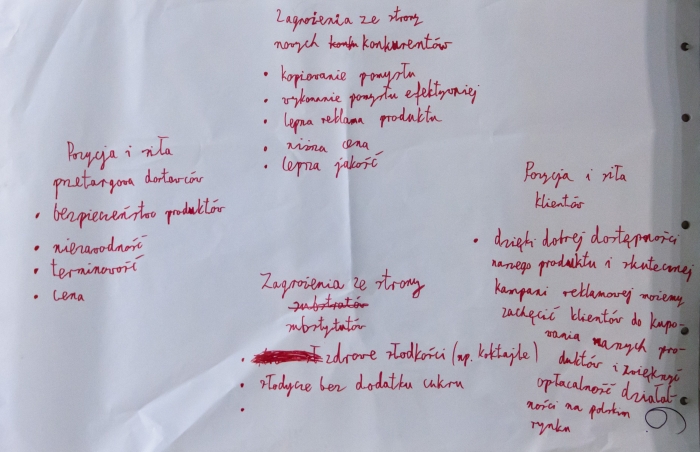 Zagrożenia ze strony
nowych konku konkurentów
• kopiowanie pomysłu
• wykonanie pomysłu efektywniej
• lepsza reklama produktu
• niższa cena
• lepsza jakość
Pozycja i siła
przetargowa dostawców
• bezpieczeństwo produktów
• niezawodność
• terminowość
• cena
Zagrożenia ze strony
substratów
substytutów
• zdrowe słodkości (np. koktajle)
• słodycze bez dodatku cukru
•
Pozycja i siła
klientów
• dzięki dobrej dostępności
naszego produktu i skutecznej
kampani reklamowej możemy
zachęcić klientów do kupo-
wania naszych pro-
duktów i zwiększyć
opłacalność działal-
ności na polskim
rynku
6